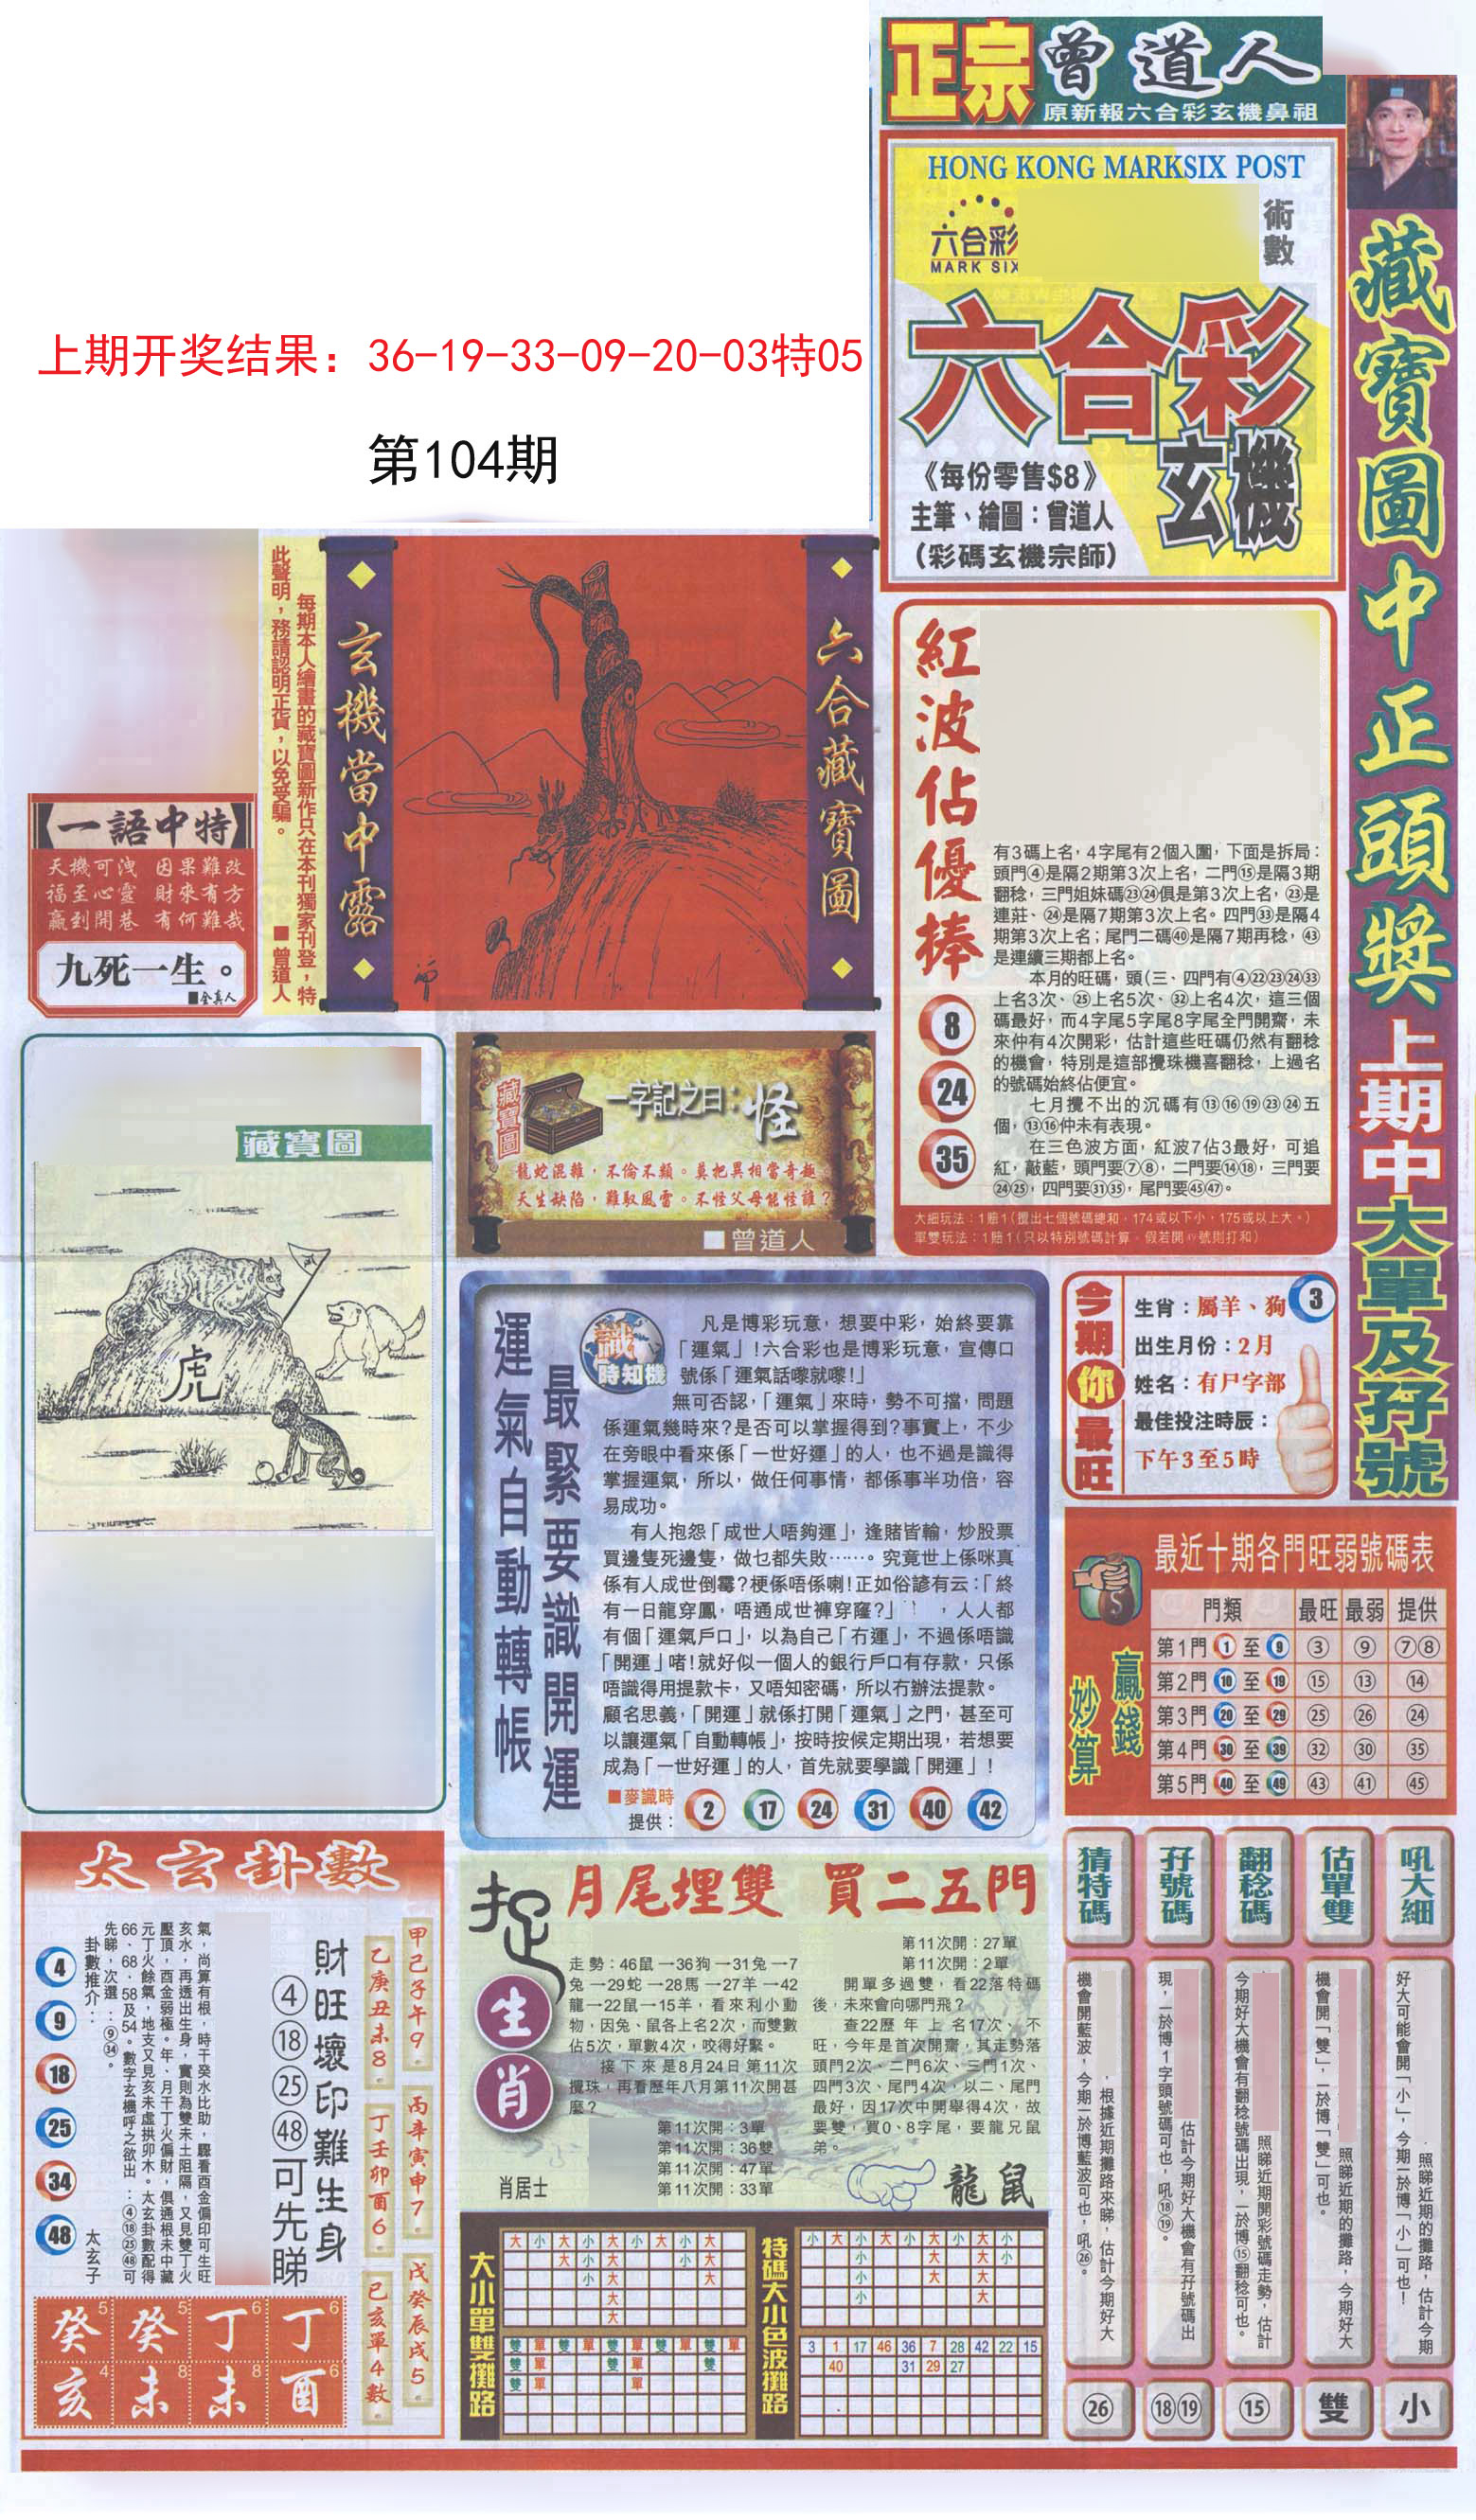 正宗曾道人
原新報六合彩玄機鼻祖
HONG KONG MARKSIX POST
六合彩
MARK SIX
術數
六合彩
玄機
《每份零售$8》
主筆、繪圖：曾道人
（彩碼玄機宗師）
藏寶圖中正頭獎上期中大單及孖號
上期开奖结果：36-19-33-09-20-03特05
第104期
每期本人繪畫的藏寶圖新作只在本刊獨家刊登，特
此聲明，務請認明正貨，以免受騙。
■曾道人
玄機當中露
六合藏寶圖
一語中特
天機可洩 因果難改
福至心靈 財來有方
贏到開巷 有何難哉
九死一生。
■全真人
紅波佔優捧
8
24
35
有3碼上名，4字尾有2個入圍，下面是拆局：
頭門④是隔2期第3次上名，二門⑮是隔3期
翻稔，三門姐妹碼㉓㉔俱是第3次上名，㉓是
連莊、㉔是隔7期第3次上名。四門㉝是隔4
期第3次上名；尾門二碼㊵是隔7期再稔，㊸
是連續三期都上名。
本月的旺碼，頭（三、四門有④㉒㉓㉔㉝
上名3次、㉕上名5次、㉜上名4次，這三個
碼最好，而4字尾5字尾8字尾全門開齋，未
來仲有4次開彩，估計這些旺碼仍然有翻稔
的機會，特別是這部攪珠機喜翻稔，上過名
的號碼始終佔便宜。
七月攪不出的沉碼有⑬⑯⑲㉓㉔五
個，⑬⑯仲未有表現。
在三色波方面，紅波7佔3最好，可追
紅，敲藍，頭門要⑦⑧，二門要⑭⑱，三門要
㉔㉕，四門要㉛㉟，尾門要㊺㊼。
大細玩法：1賠1（攪出七個號碼總和，174或以下小，175或以上大。）
單雙玩法：1賠1（只以特別號碼計算，假若開㊾號則打和）
藏寶圖
一字記之曰：怪
龍蛇混雜，不倫不類。莫把異相當奇趣
天生缺陷，難馭風雲。不怪父母能怪誰？
■曾道人
藏寶圖
虎
運氣自動轉帳
最緊要識開運
識時知機
凡是博彩玩意，想要中彩，始終要靠
「運氣」！六合彩也是博彩玩意，宣傳口
號係「運氣話嚟就嚟！」
無可否認，「運氣」來時，勢不可擋，問題
係運氣幾時來？是否可以掌握得到？事實上，不少
在旁眼中看來係「一世好運」的人，也不過是識得
掌握運氣，所以，做任何事情，都係事半功倍，容
易成功。
有人抱怨「成世人唔夠運」，逢賭皆輸，炒股票
買邊隻死邊隻，做乜都失敗……。究竟世上係咪真
係有人成世倒霉？梗係唔係喇！正如俗諺有云：「終
有一日龍穿鳳，唔通成世褲穿窿？」，人人都
有個「運氣戶口」，以為自己「冇運」，不過係唔識
「開運」啫！就好似一個人的銀行戶口有存款，只係
唔識得用提款卡，又唔知密碼，所以冇辦法提款。
顧名思義，「開運」就係打開「運氣」之門，甚至可
以讓運氣「自動轉帳」，按時按候定期出現，若想要
成為「一世好運」的人，首先就要學識「開運」！
■麥識時
提供：
2 17 24 31 40 42
今期你最旺
3
生肖：屬羊、狗
出生月份：2月
姓名：有尸字部
最佳投注時辰：
下午3至5時
最近十期各門旺弱號碼表
贏錢妙算
門類 最旺 最弱 提供
第1門 1 至 9 ③ ⑨ ⑦⑧
第2門 10 至 19 ⑮ ⑬ ⑭
第3門 20 至 29 ㉕ ㉖ ㉔
第4門 30 至 39 ㉜ ㉚ ㉟
第5門 40 至 49 ㊸ ㊶ ㊺
太玄卦數
甲己子午9。
乙庚丑未8。
丙辛寅申7。
丁壬卯酉6。
戊癸辰戌5。
巳亥單4數。
財旺壞印難生身
④⑱㉕㊽可先睇
氣，尚算有根，時干癸水比助，驟看酉金偏印可生旺
亥水，再透出生身，實則為雙未土阻隔，又見雙丁火
壓頂，酉金弱極。年、月干丁火偏財，俱通根未中藏
元丁火餘氣，地支又見亥未虛拱卯木。太玄卦數配得
66、68、58及54。數字玄機呼之欲出：④⑱㉕㊽可
先睇，次選：⑨㉞。
卦數推介：
太玄子
4
9
18
25
34
48
癸5 癸5 丁6 丁6
亥4 未8 未8 酉6
捉生肖
月尾埋雙 買二五門
走勢：46鼠→36狗→31兔→7
兔→29蛇→28馬→27羊→42
龍→22鼠→15羊，看來利小動
物，因兔、鼠各上名2次，而雙數
佔5次，單數4次，咬得好緊。
接下來是8月24日第11次
攪珠，再看歷年八月第11次開甚
麼？
第11次開：3單
第11次開：36雙
第11次開：47單
第11次開：33單
肖居士
第11次開：27單
第11次開：2單
開單多過雙，看22落特碼
後，未來會向哪門飛？
查22歷年上名17次、不
旺，今年是首次開齋，其走勢落
頭門2次、二門6次、三門1次、
四門3次、尾門4次，以二、尾門
最好，因17次中開舉得4次，故
要雙，買0、8字尾，要龍兄鼠
弟。
龍鼠
大小單雙攤路
大 小 大 小 大 小 大 小 大
大 小 大 小 大
小 大 大
大
大
雙 單 雙 單 雙 單 雙 單 雙 單
雙 單 雙 單 雙
雙 單 單
特碼大小色波攤路
小 大 小 大 小 大 小 大 小
小 大 大 小
小 大 大
小 大
3 1 17 46 36 7 28 42 22 15
40 31 29 27
猜特碼
機會開藍波，今期一於博藍波可也，吼㉖。
，根據近期攤路來睇，估計今期好大
㉖
孖號碼
現，一於博1字頭號碼可也，吼⑱⑲。
估計今期好大機會有孖號碼出
⑱⑲
翻稔碼
今期好大機會有翻稔號碼出現，一於博⑮翻稔可也。
照睇近期開彩號碼走勢，估計
⑮
估單雙
機會開「雙」，一於博「雙」可也。
照睇近期的攤路，今期好大
雙
吼大細
好大可能會開「小」，今期一於博「小」可也！
照睇近期的攤路，估計今期
小